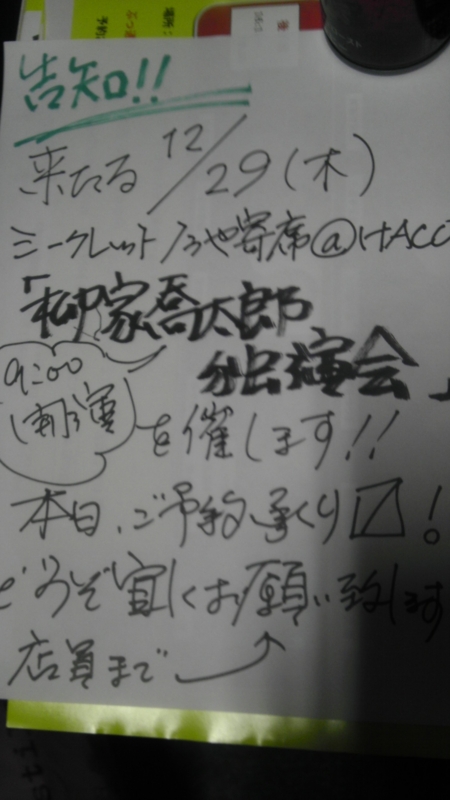 告知!!
来たる12/29(木)
シークレットふや寄席@HACO
「柳家吾太郎
独演会」
9:00
開演
を催します!!
本日、ご予約承り〼!
どうぞ宜しくお願い致します
店員まで